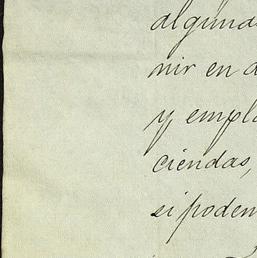 algunas
nir en a
y empla
ciendas,
si podem